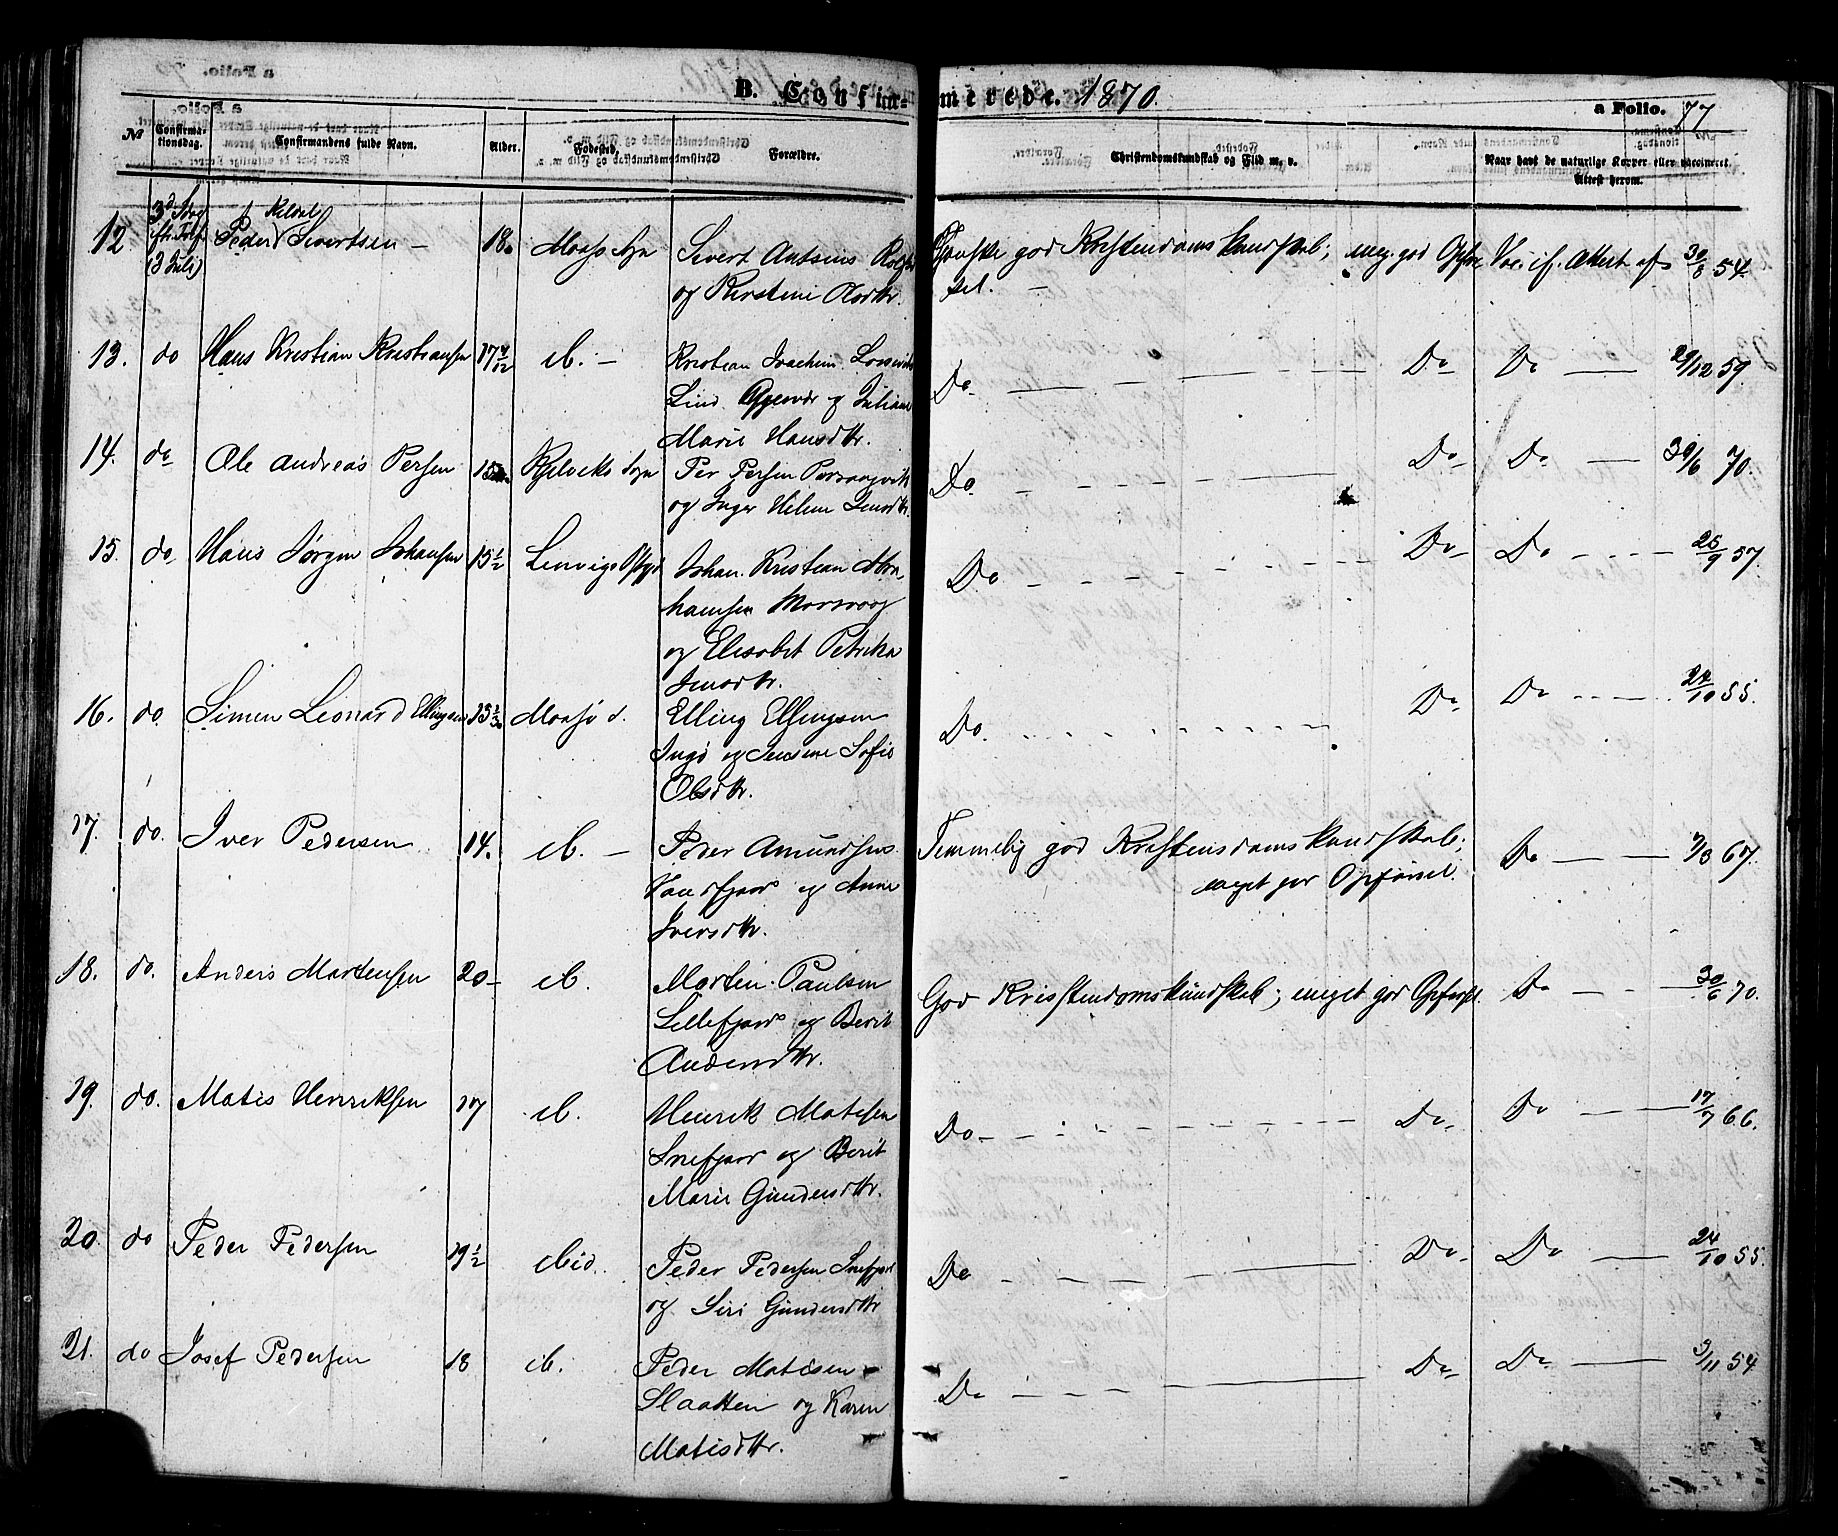 B. Confir- merede. 1870.
a Folio. 77
№ Confirma-tionsdag. Confirmandens fulde Navn. Alder. Fødested. Forældre. Christendomskundskab og Flid m. v. Naar havt de naturlige Kopper eller vaccineret. Attest herom.
12. 3d Søng eft. Tref. (3 Juli) Peder Kildal Sivertsen - 18. Maasø Sogn Sivert Antsins
og Kirstine Olsdtr.
Ganske god Kristendomskundskab; meg. god Opførsel. - Vac. if. Attest af 30/8 54.
13. do Hans Kristian Kristiansen 17 ib. - Kristian Joachim
Lind og Juliane
Marie Hansdtr.
Do. Do. Do 29/12 59.
14. do Ole Andreas Persen 15 Kjelviks Sogn Per Persen Porsangvik
og Inger Helene Jensdtr.
Do Do. Do. 30/6 70.
15. do. Hans Jørgen Johansen 15 1/2 Lenvigs Johan Kristian Abra-
hamsen
og Elisabet Petrikke
Jensdtr.
Do Do. Do 25/9 57.
16. do. Simen Leonard Ellingsen Maasø S. Elling Ellingsen
Ingø og Jensine Sofie
Olsdtr.
Do. Do. Do 24/10 55.
17. do. Iver Pedersen 14. ib. - Peder Amundsen
og Anne
Iversdtr.
Temmelig god Kristendomskundskab;
meget god Opførsel. Do 7/8 67.
18. do. Anders Mortensen 20 ib. Morten Paulsen
Lillefjord og Berit
Andersdtr.
God Kristendomskundskab; meget god Opførsel. Do 30/6 70.
19. do. Matis Henriksen 17 ib. Henrik Matisen
Snefjord og Berit
Marie Gundersdtr.
Do Do. Do 17/7 66.
20. do Peder Pedersen 19 1/2 ibid. Peder Pedersen Snefjord
og Siri Gundersdtr
Do Do. Do 24/10 55.
21. do Josef Pedersen 18 ib. Peder Matisen
Slaatten og Karen
Matisdtr.
Do Do. Do. 3/11 54